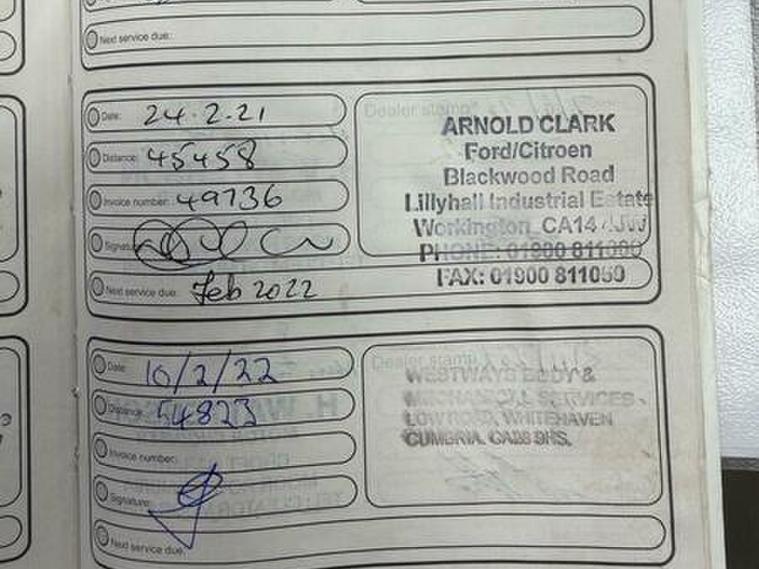 Next service due:
Date: 24.2.21
Dealer stamp
Distance: 45458
Invoice number: 49736
Signature
Next service due: Feb 2022
ARNOLD CLARK
Ford/Citroen
Blackwood Road
Lillyhall Industrial Estate
Workington CA14
PHONE: 01900
FAX: 01900 811050
Date: 10/2/22
Distance: 54823
Invoice number:
Signature:
Next service due:
Dealer stamp
WESTWAYS BODY &
MECHANICAL SERVICES
LOW ROAD, WHITEHAVEN
CUMBRIA. CA28 9HS.